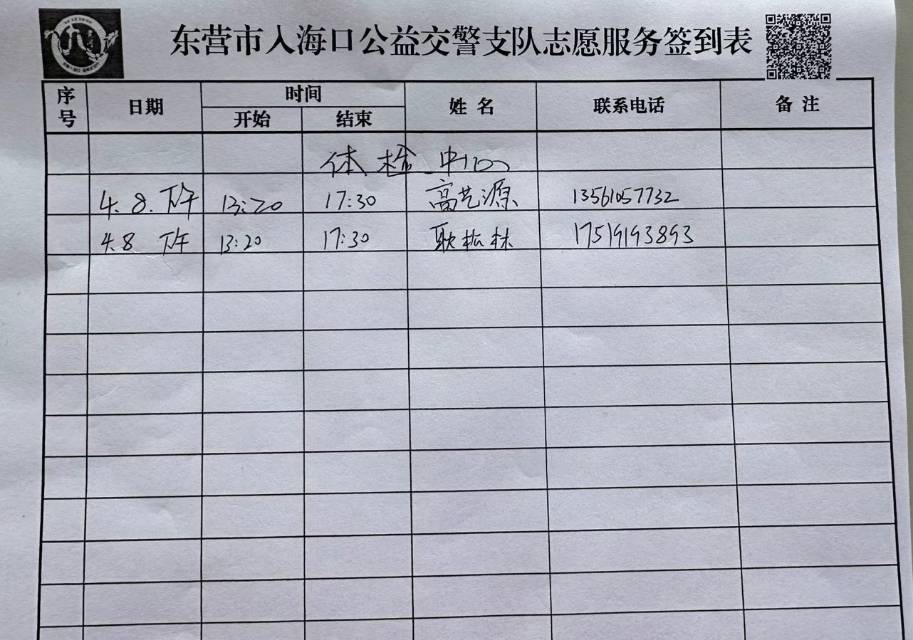 东营市入海口公益交警支队志愿服务签到表
序号 日期 时间 开始 结束 姓名 联系电话 备注
体检中心
4.8.下午 13:20 17:30 高艺源 13561057732
4.8 下午 13:20 17:30 耿 林 17519193893